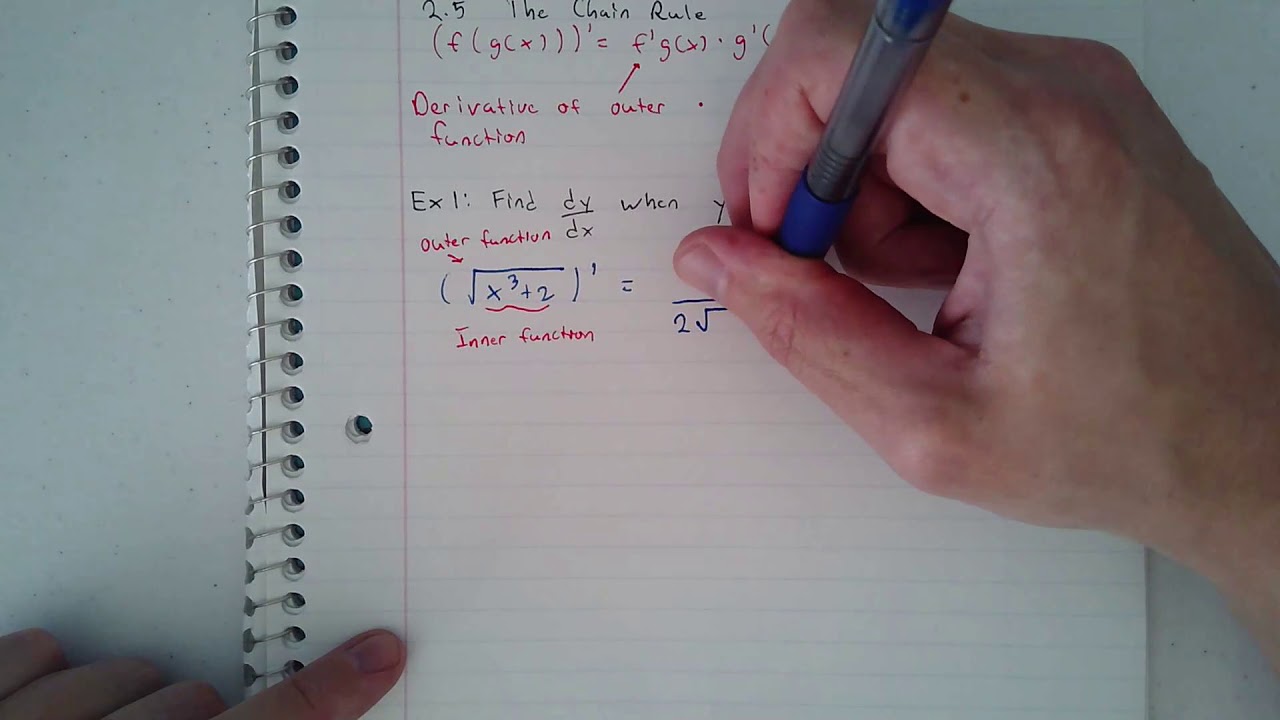 2.5 The Chain Rule
(f(g(x)))' = f'g(x) · g'(
Derivative of outer ·
function
Ex 1: Find dy/dx when y
outer function
(√x³+2)' = /2√
Inner function